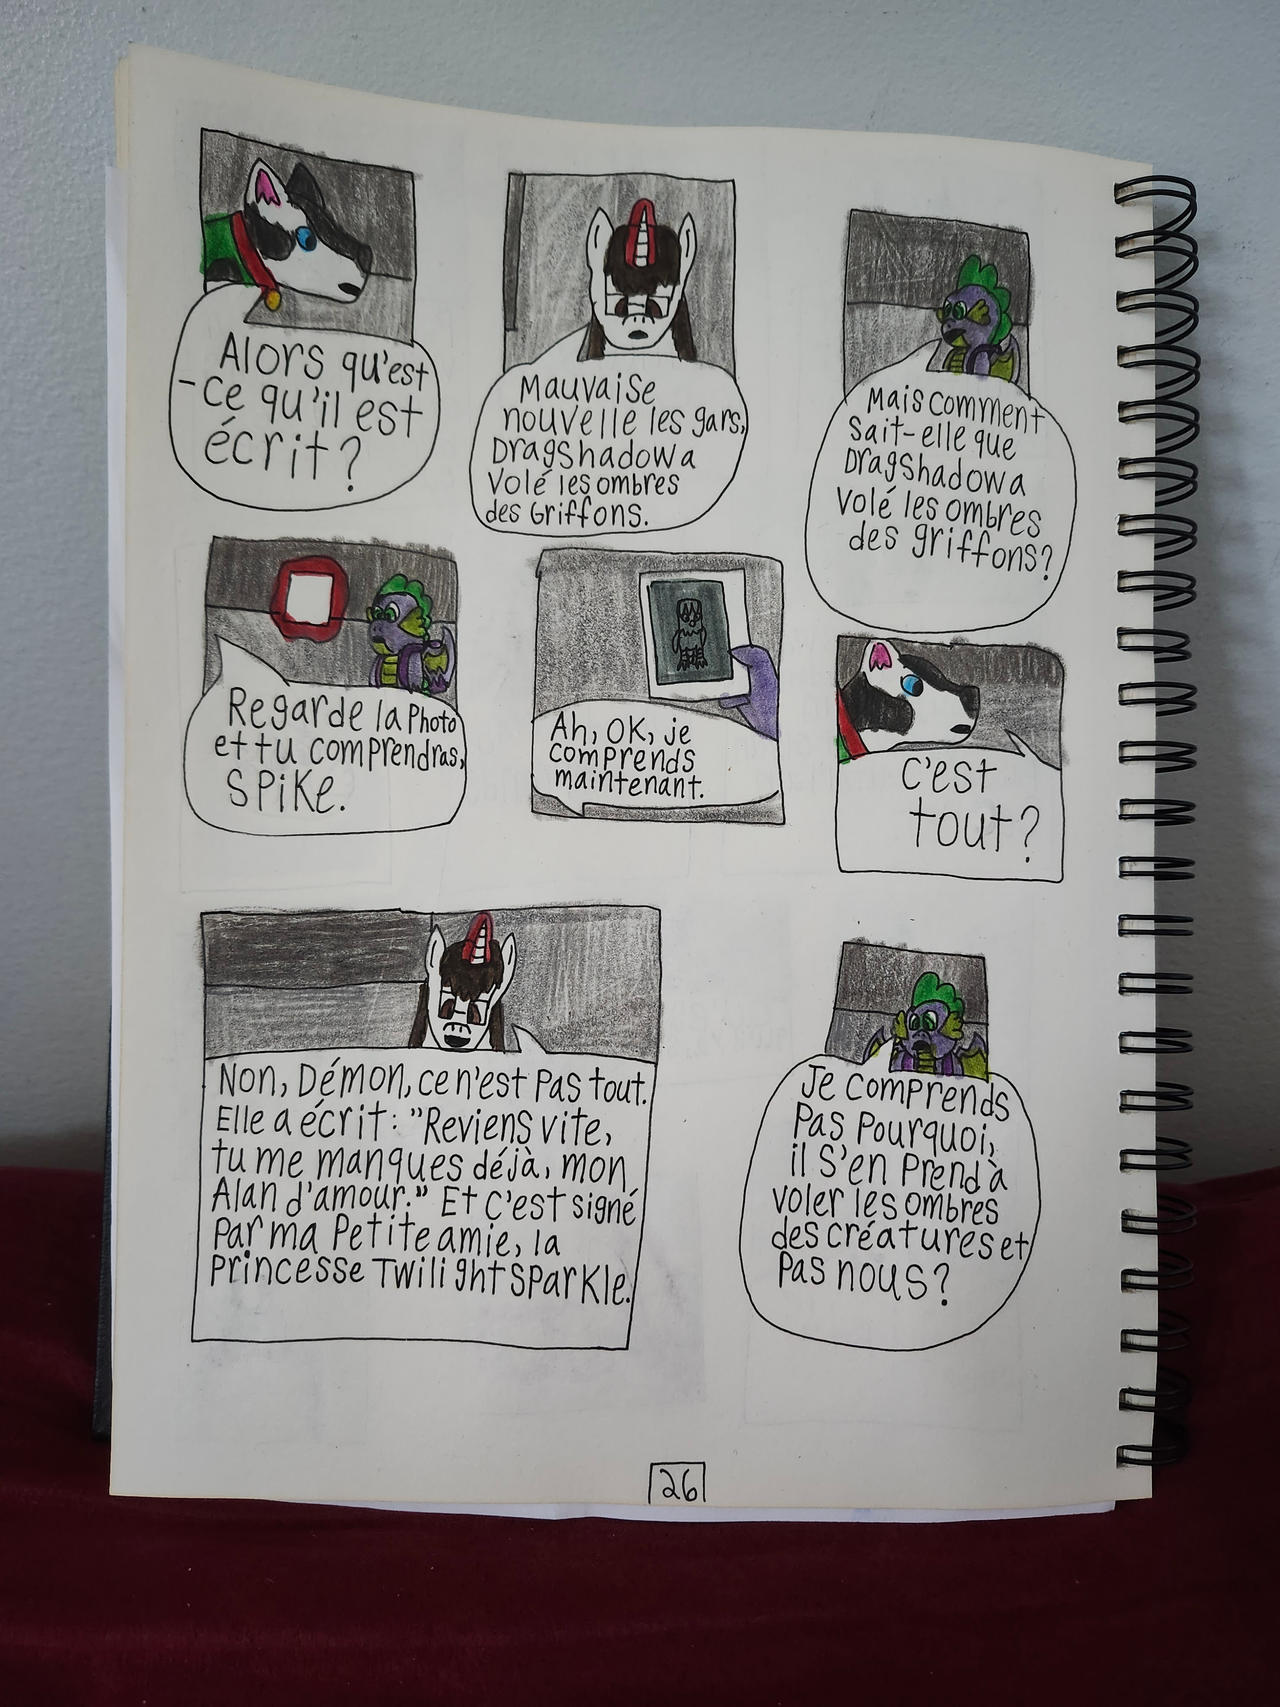 Alors qu'est
-ce qu'il est
écrit?
Mauvaise
nouvelle les gars,
Dragshadow a
volé les ombres
des Griffons.
Mais comment
sait-elle que
Dragshadow a
volé les ombres
des griffons?
Regarde la Photo
et tu comprendras,
SPiKe.
Ah, OK, je
comprends
maintenant.
C'est
tout?
Non, Démon, ce n'est Pas tout.
Elle a écrit: "Reviens vite,
tu me manques déjà, mon
Alan d'amour." Et c'est signé
Par ma Petite amie, la
Princesse Twilight Sparkle.
Je comprends
Pas Pourquoi,
il s'en Prend à
voler les ombres
des créatures et
Pas nous?
26